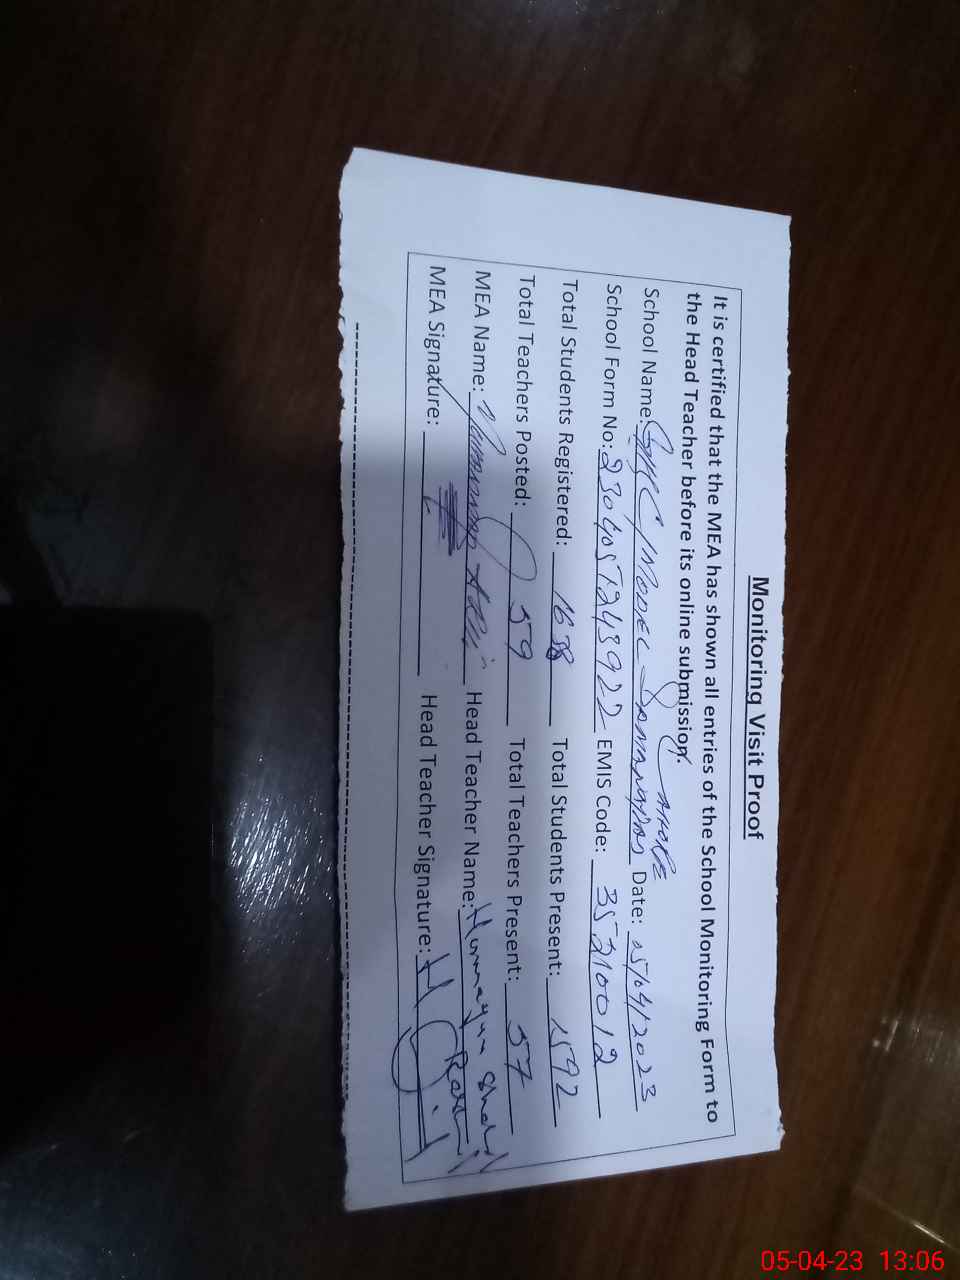 Monitoring Visit Proof
It is certified that the MEA has shown all entries of the School Monitoring Form to
the Head Teacher before its online submission.
School Name: MODEL Date: 05/04/2023
School Form No: 2304051243922 EMIS Code: 35210012
Total Students Registered: 1638 Total Students Present: 1592
Total Teachers Posted: 59 Total Teachers Present: 57
MEA Name: Head Teacher Name: Humayun
MEA Signature: Head Teacher Signature:
05-04-23 13:06